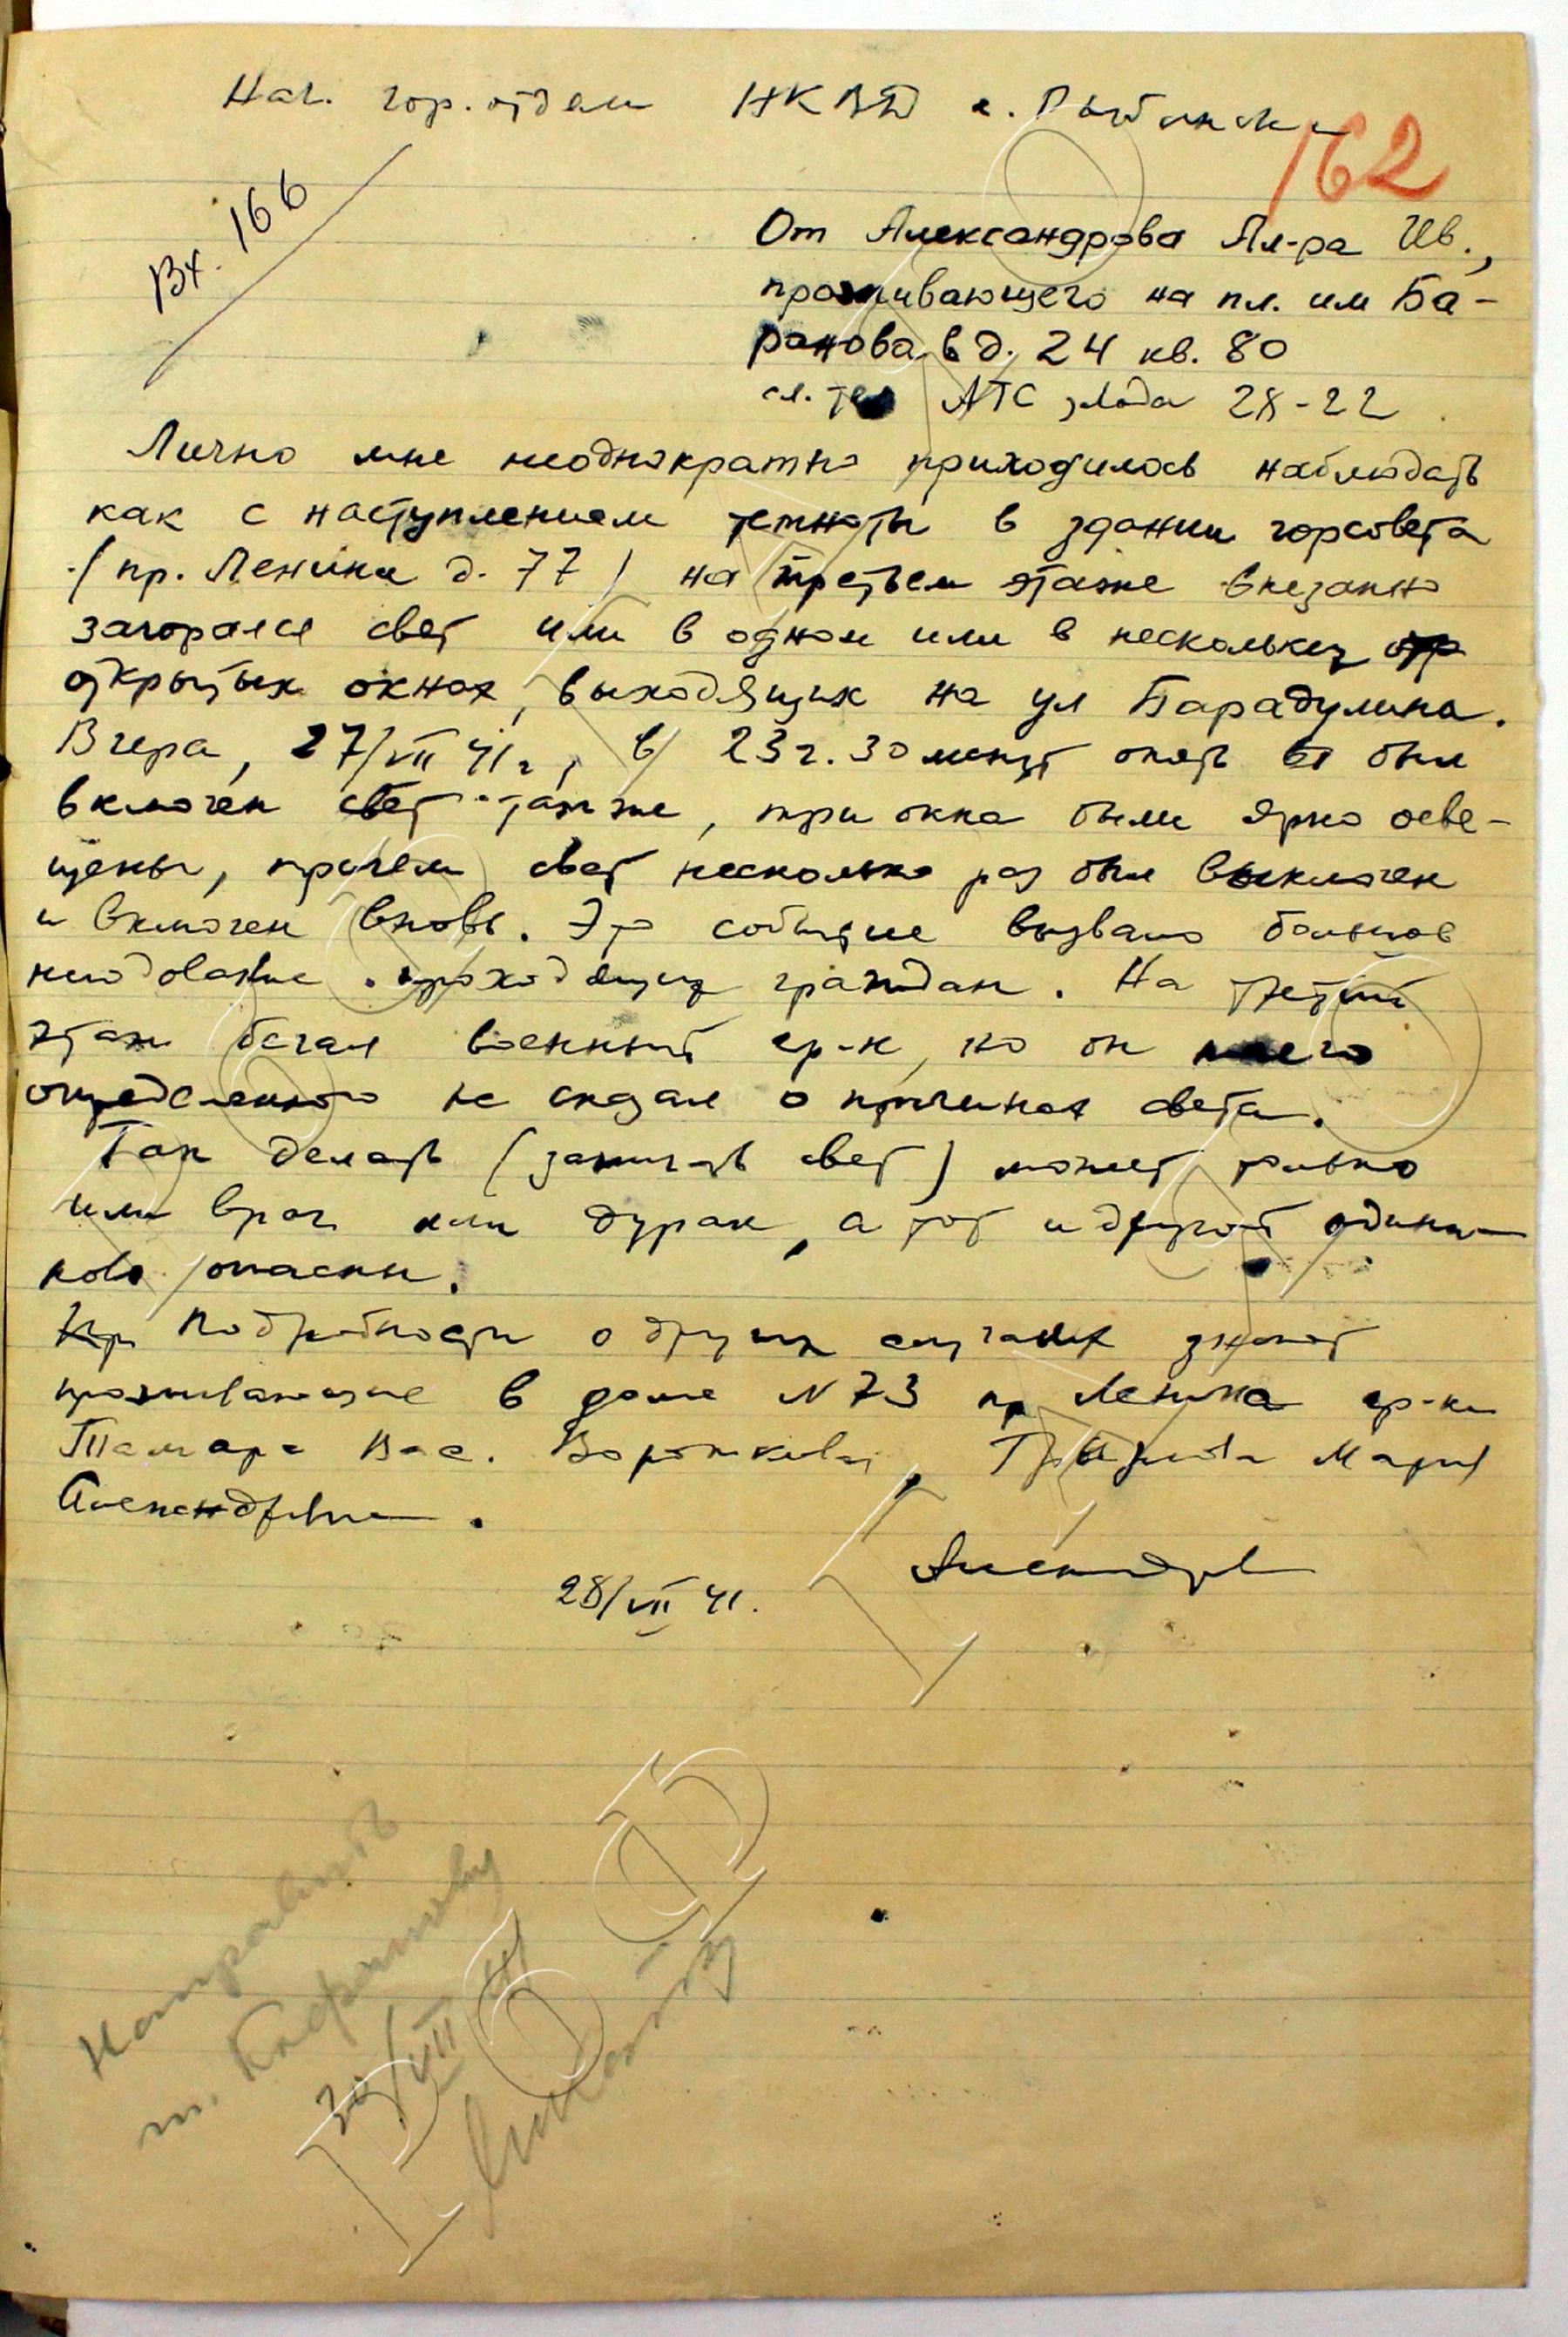 Нач. гор. отдела НКВД г. Рыбинска
162
Вх. 166
От Александрова Ал-ра Ив.,
проживающего на пл. им Ба-
ранова в д. 24 кв. 80
сл. тел АТС з-вода 28-22
Лично мне неоднократно приходилось наблюдать
как с наступлением темноты в здании горсовета
(пр. Ленина д. 77) на третьем этаже внезапно
загорался свет или в одном или в нескольких
открытых окнах, выходящих на ул Парадулина.
Вчера, 27/VII 41 г, в 23 ч. 30 минут опять был
включен свет там же, три окна были ярко осве-
щены, причем свет несколько раз был выключен
и включен вновь. Это событие вызвало большое
негодование проходящих граждан. На третий
этаж бегал военный гр-н, но он ничего
определенного не сказал о причинах света.
Так делать (зажигать свет) может только
или враг или дурак, а тот и другой одина-
ково опасны.
Подробности о других случаях знают
проживающие в доме N 73 пр Ленина гр-ки
Тамара Вас. Воротникова, Мария
Александровна.
28/VII 41.
Александров
Направить
т.
30/VII 41